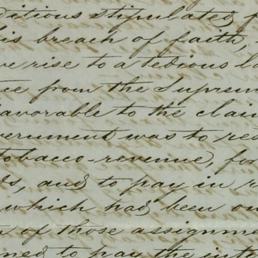 ditions stipulated f
his breach of faith,
ve rise to a tedious la
ce from the Suprem
favorable to the clai
vernment was to res
Tobacco-revenue, for
and to pay in r
which had been ou
of those assignme
ned to pay the inte